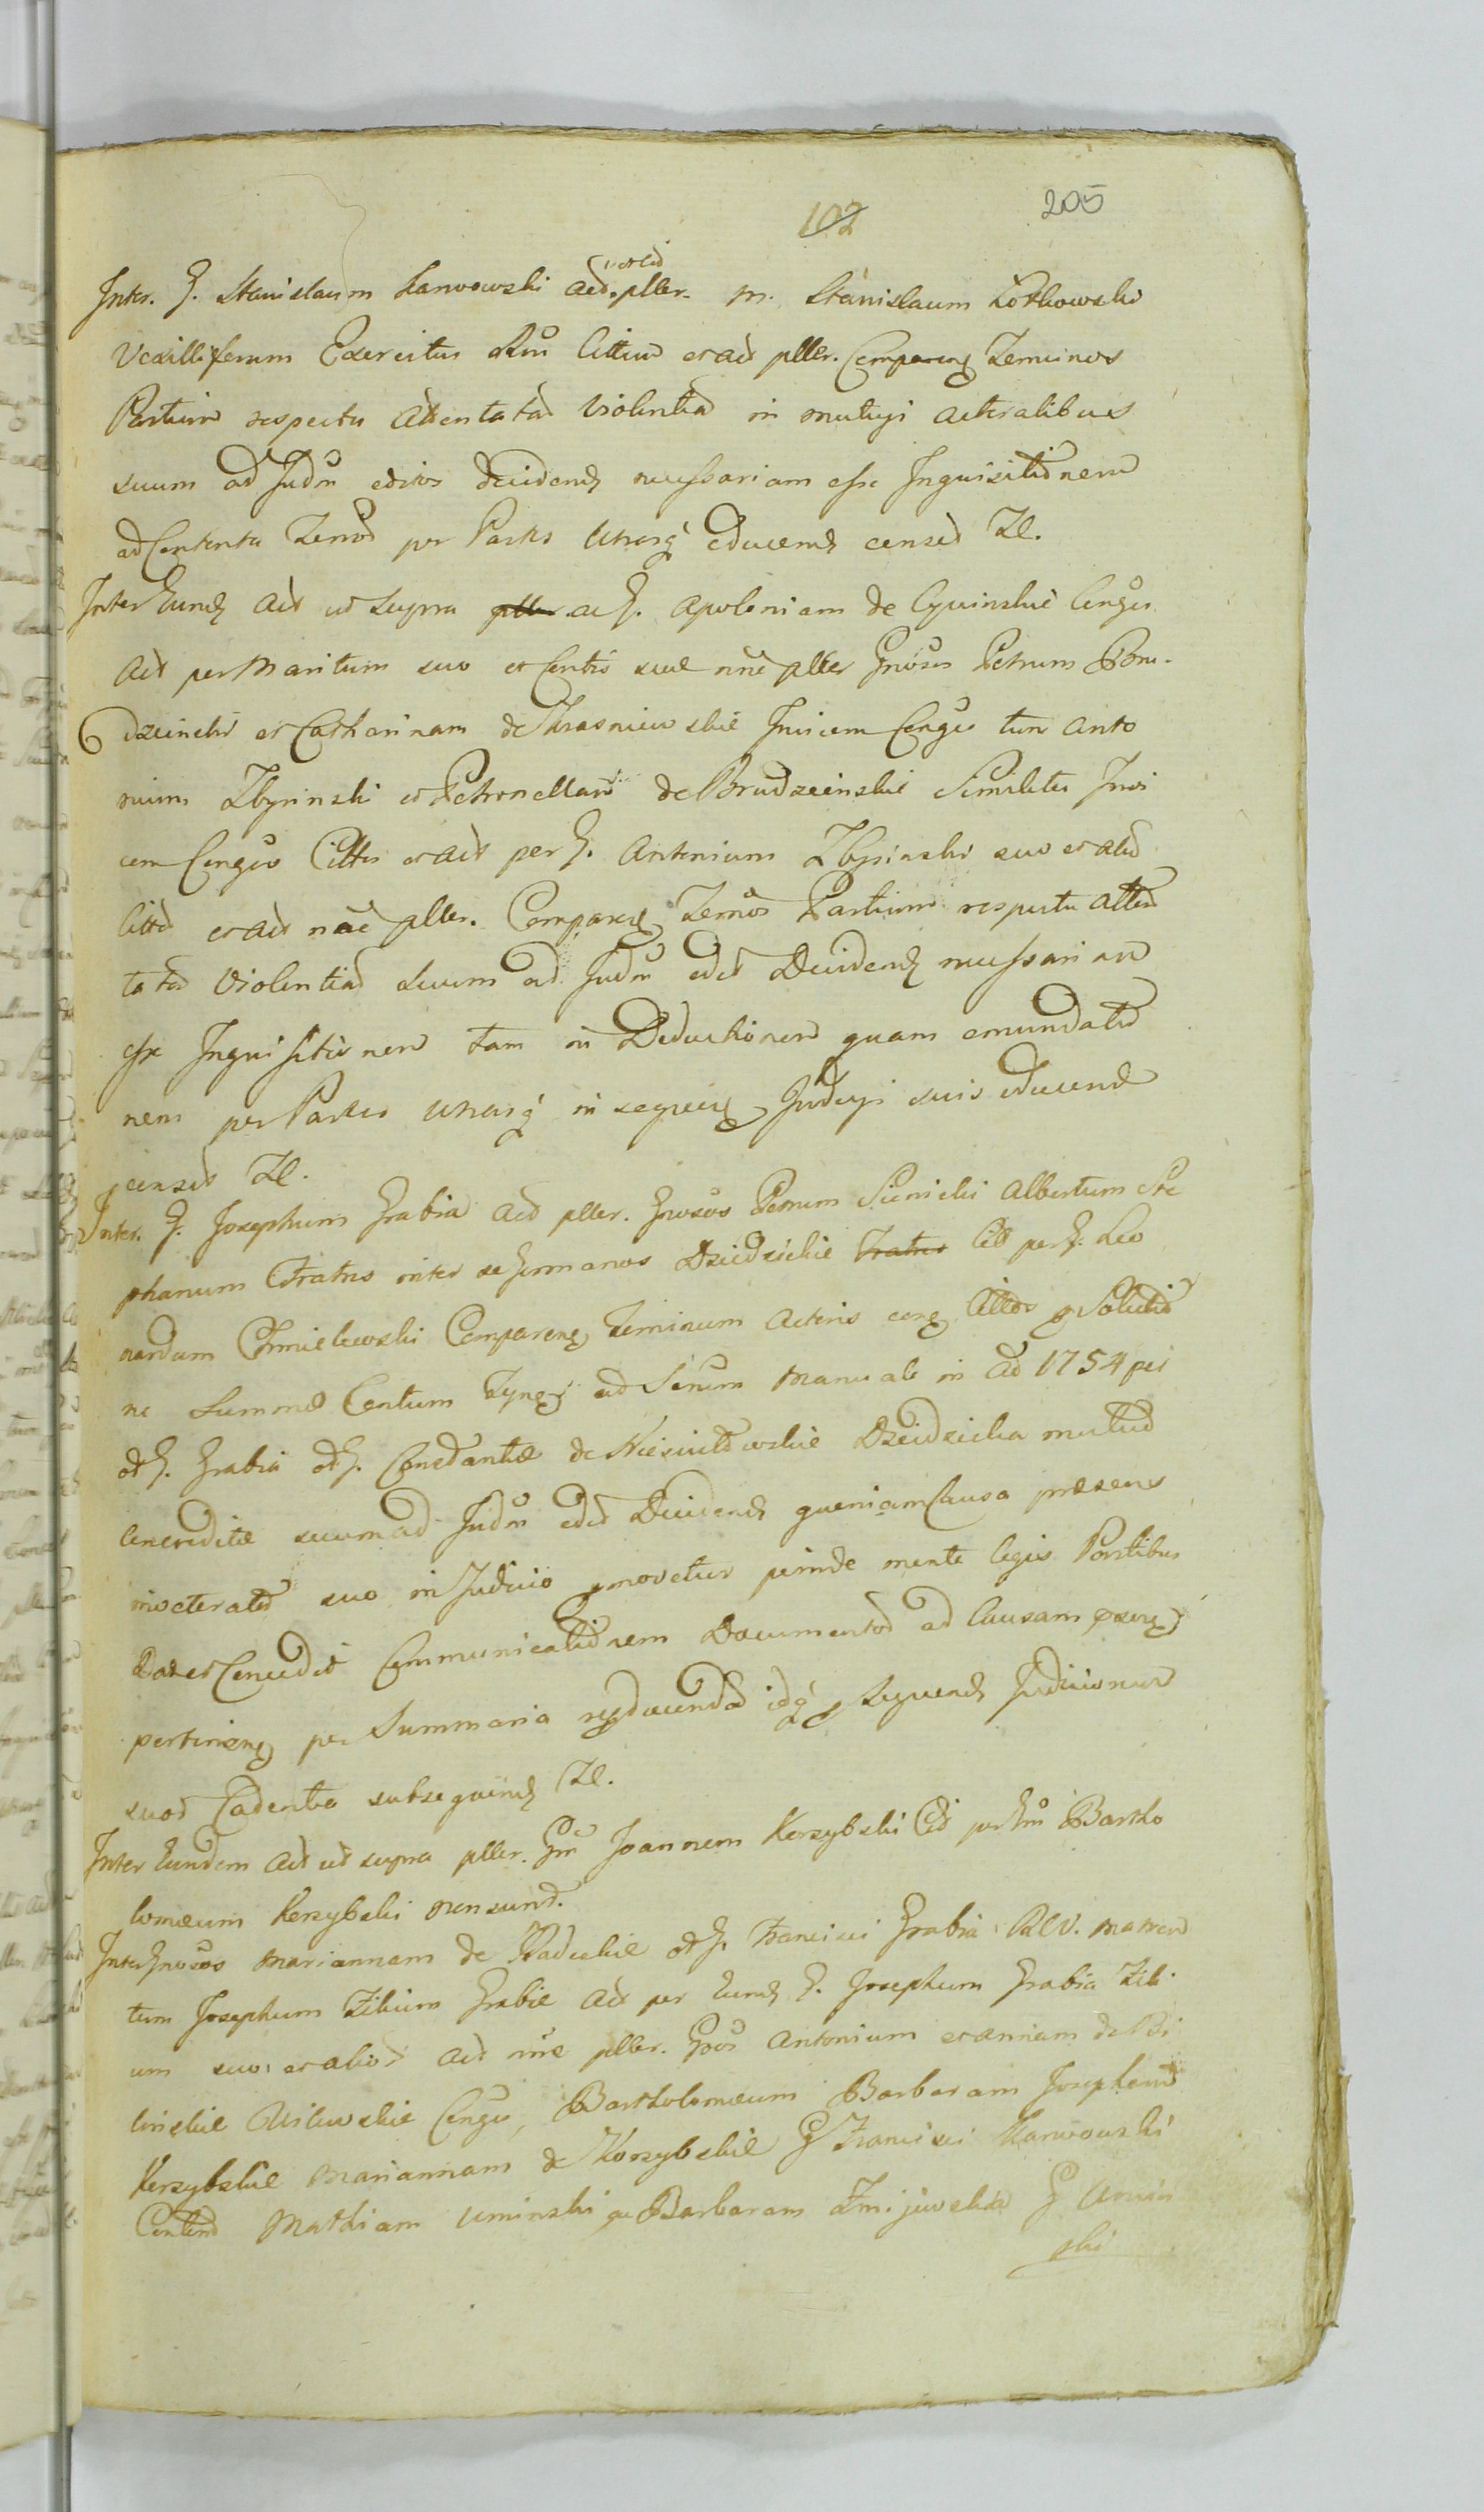 102 205
Inter G. Stanislaum Karwowski Act. pller. M. Stanislaum Żołkowski
Vexilliferum Exercitus Citum et act pller. Comparen Terminos
Partium respectu attentatæ violentiæ in mutuis acticatibus
suum ad Judm edios decidend necessariam esse Inquisitionem
ad Contenta Termo per Partes utrasq educend censet Zl.
Inter Eund Act ut supra pller ac G. Apoloniam de Conges
Act per Maritum suo et Contis suæ nne pller Gnosos Petrum Bru-
dzinski et Catharinam de Krasniewskie Invicem Conges tum Anto
nium Zbyinski et Petronellam de Brudzinskie Similiter Invi
cem Conges Cittos et act per G. Antonium Zbyinski suo et alio
citto et act nne pller. Comparen Termos Partium respectu atten
tatæ violentiæ suum ad Judm edit Decidend necessariam
esse Inquisitionem tam in Deductionem quam emundatio
nem per Partes utrasq in sequen Judiciis suis educend
censet Zl.
Inter G. Josephum Grabia Act pller. Gnosos Petrum Sienicki Albertum Ste
phanum Fratres inter se Germanos Dziedzickie Fratres Citt per G. Leo
nardum Chmielewski Comparen Terminum Acteris eos Cittos p Solutio
ne Summæ Centum Tynf ad Serium Manuale in Ao 1754 per
ol G. Grabia ol G. Constantiæ de Dziedzicka mutuo
Concreditæ suum ad Judm edit Decidend quoniam Causa præsens
inveterata suo in Judicio pmovetur perinde mente legis Partibus
Dat et Concedit Communicationem Documentor ad Causam psen
pertinen per Summaria reproducenda idq p Sequend Judiciorum
suor Cadentia subsequend Zl.
Inter Eundem Act ut supra pller. Gm Joannem Korzybski Citt per Gm Bartho
lomæum Korzybski non sunt.
Inter Gnosos Mariannam de Radeckie ol G. Francisci Grabia Rel. V. Matrem
tum Josephum Filium Grabie Act per Eund G. Josephum Grabia Fili
um suo et alior Act nne pller. Gnos Antonium et Annam de Bi
linskie Wilewskie Conges, Bartholomæum Barbaram Josephum
Korzybskie Mariannam de Korzybskie G Francisci Karwowski
Contem Mathiam Uminski ac Barbaram Żmijewska G Umin
ski